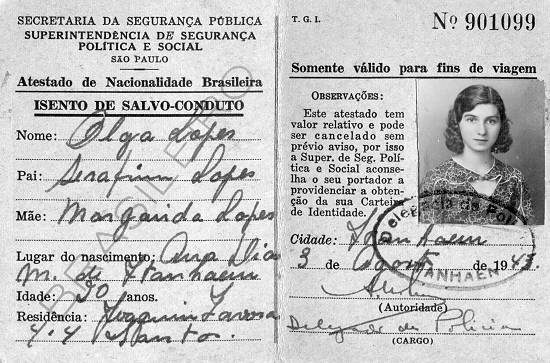 SECRETARIA DA SEGURANÇA PÚBLICA
SUPERINTENDÊNCIA DE SEGURANÇA
POLÍTICA E SOCIAL
SÃO PAULO
Atestado de Nacionalidade Brasileira
ISENTO DE SALVO-CONDUTO
Nome: Olga Lopes
Pai: Serafim Lopes
Mãe: Margarida Lopes
Lugar do nascimento: Ana Dias
M. de Itanhaem
Idade: 20 anos.
Residência: Joaquim Tavora
Santos
T. G. I.
Nº 901099
Somente válido para fins de viagem
OBSERVAÇÕES:
Este atestado tem
valor relativo e pode
ser cancelado sem
prévio aviso, por isso
a Super. de Seg. Polí-
tica e Social aconse-
lha o seu portador a
providenciar a obten-
ção da sua Carteira
de Identidade.
Delegacia de Polí
ANHAEN
Cidade: Itanhaem
3 de Agosto de 1943.
(Autoridade)
Delegado de Policia
(CARGO)